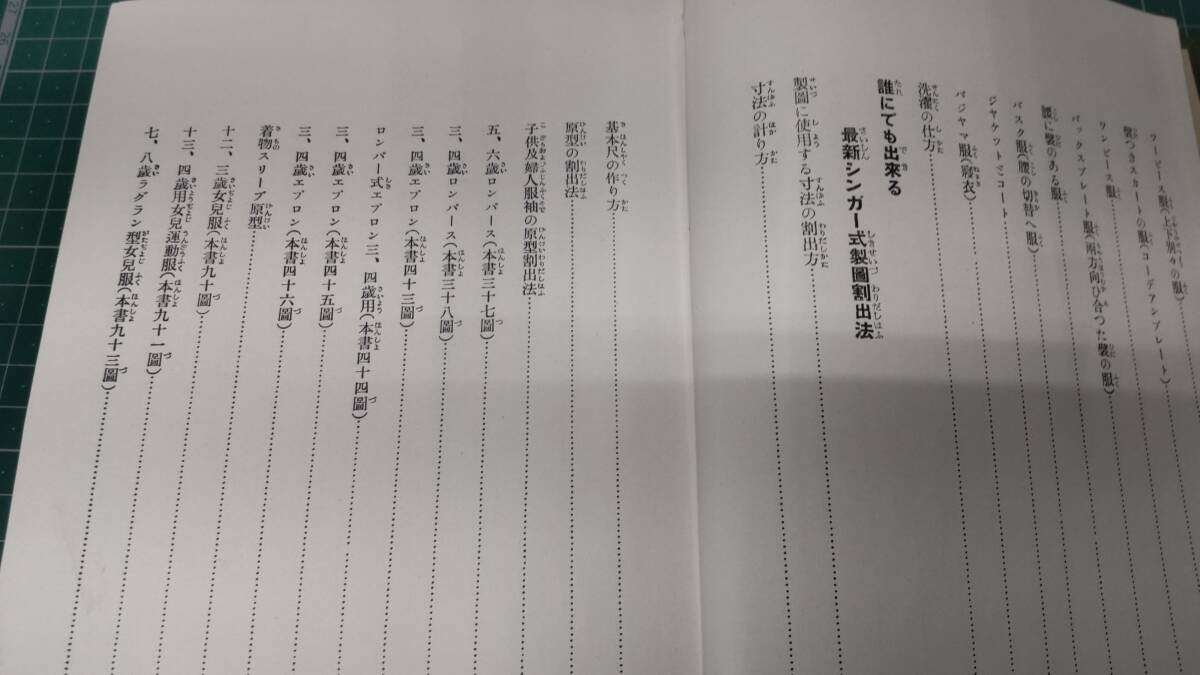 ツーピース服(上下別々の服)
襞つきスカートの服(コーデアンプレート)
ワンピース服
バックスプレート服(兩方向ひ合つた襞の服)
腰に襞のある服
バスク服(腰の切替へ服)
ジャケットマコート
パジヤマ服(寢衣)
洗濯の仕方
誰にても出來る
最新シンガー式製圖割出法
製圖に使用する寸法の割出方
寸法の計り方
基本尺の作り方
原型の割出法
子供及婦人服袖の原型割出法
五、六歳ロンパース(本書三十七圖)
三、四歳ロンパース(本書三十八圖)
三、四歳エプロン(本書四十三圖)
ロンパー式エプロン三、四歳用(本書四十四圖)
三、四歳エプロン(本書四十五圖)
三、四歳エプロン(本書四十六圖)
着物スリーブ原型
十二、三歳女兒服(本書九十圖)
十三、四歳用女兒運動服(本書九十一圖)
七、八歳ラグラン型女兒服(本書九十三圖)